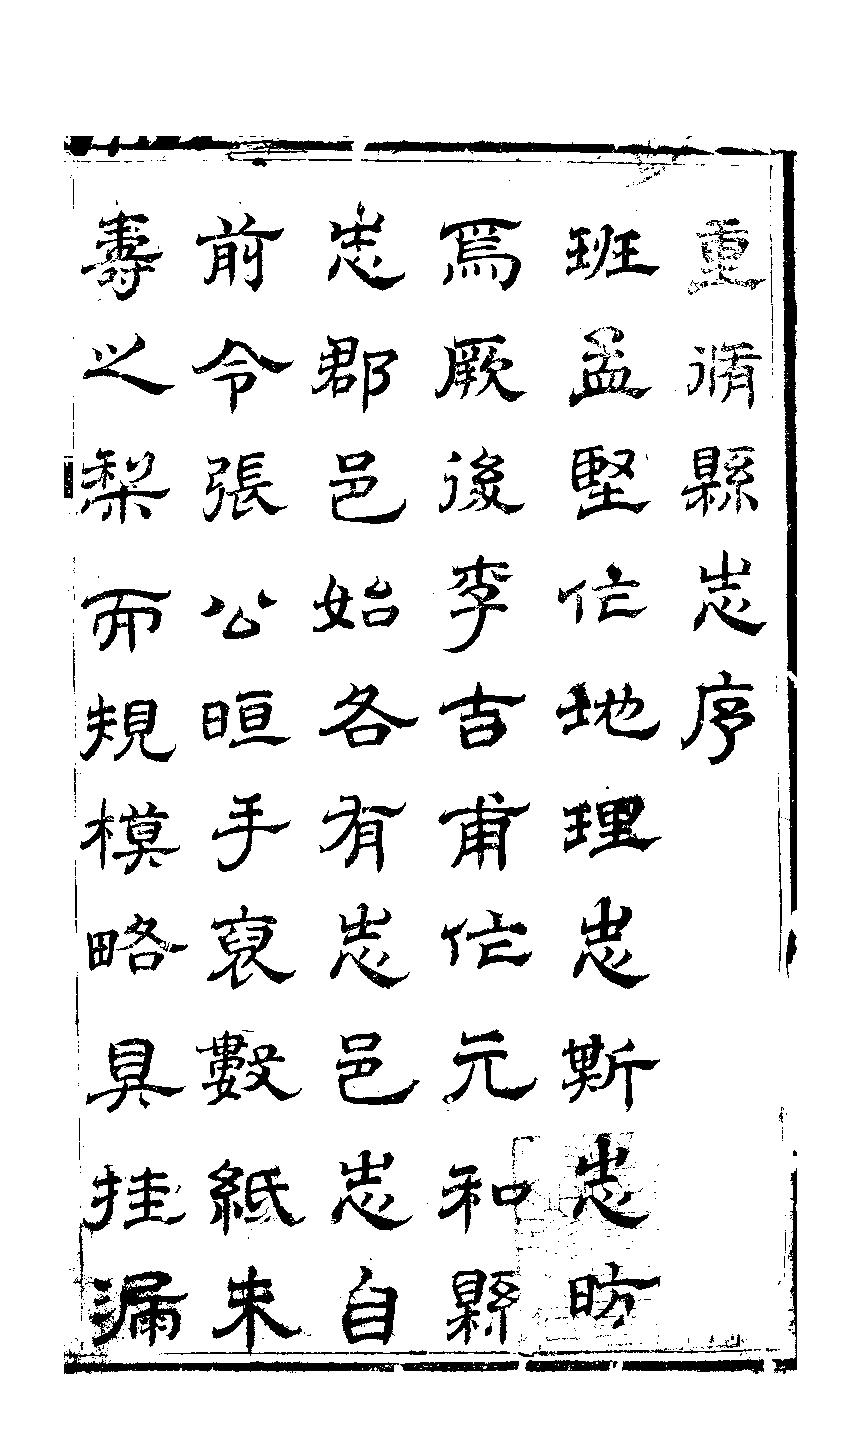 重脩縣志序
班孟堅作地理志斯志昉
焉厥後李吉甫作元和縣
志郡邑始各有志邑志自
前令張公晅手裒數紙未
壽之梨而規模略具挂漏